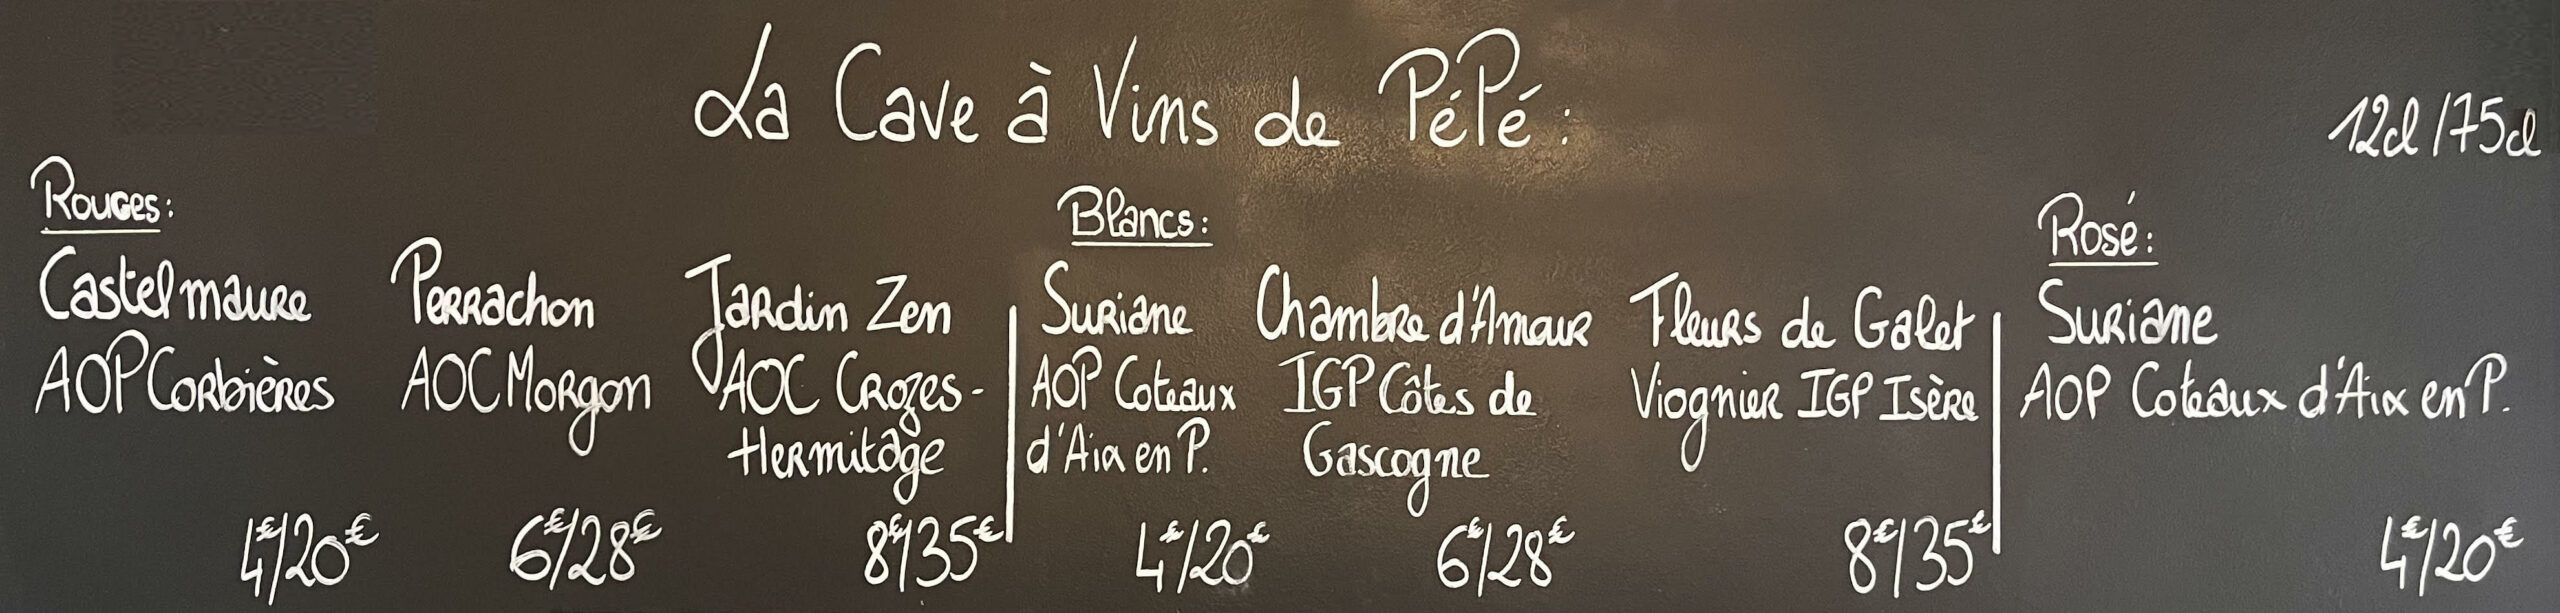 La Cave à Vins de PéPé :
12cl/75cl
Rouges :
Castelmaure
AOP Corbières
4€/20€
Perrachon
AOC Morgon
6€/28€
Jardin Zen
AOC Crozes-
Hermitage
8€/35€
Blancs :
Suriane
AOP Coteaux
d'Aix en P.
4€/20€
Chambre d'Amour
IGP Côtes de
Gascogne
6€/28€
Fleurs de Galet
Viognier IGP Isère
8€/35€
Rosé :
Suriane
AOP Coteaux d'Aix en P.
4€/20€